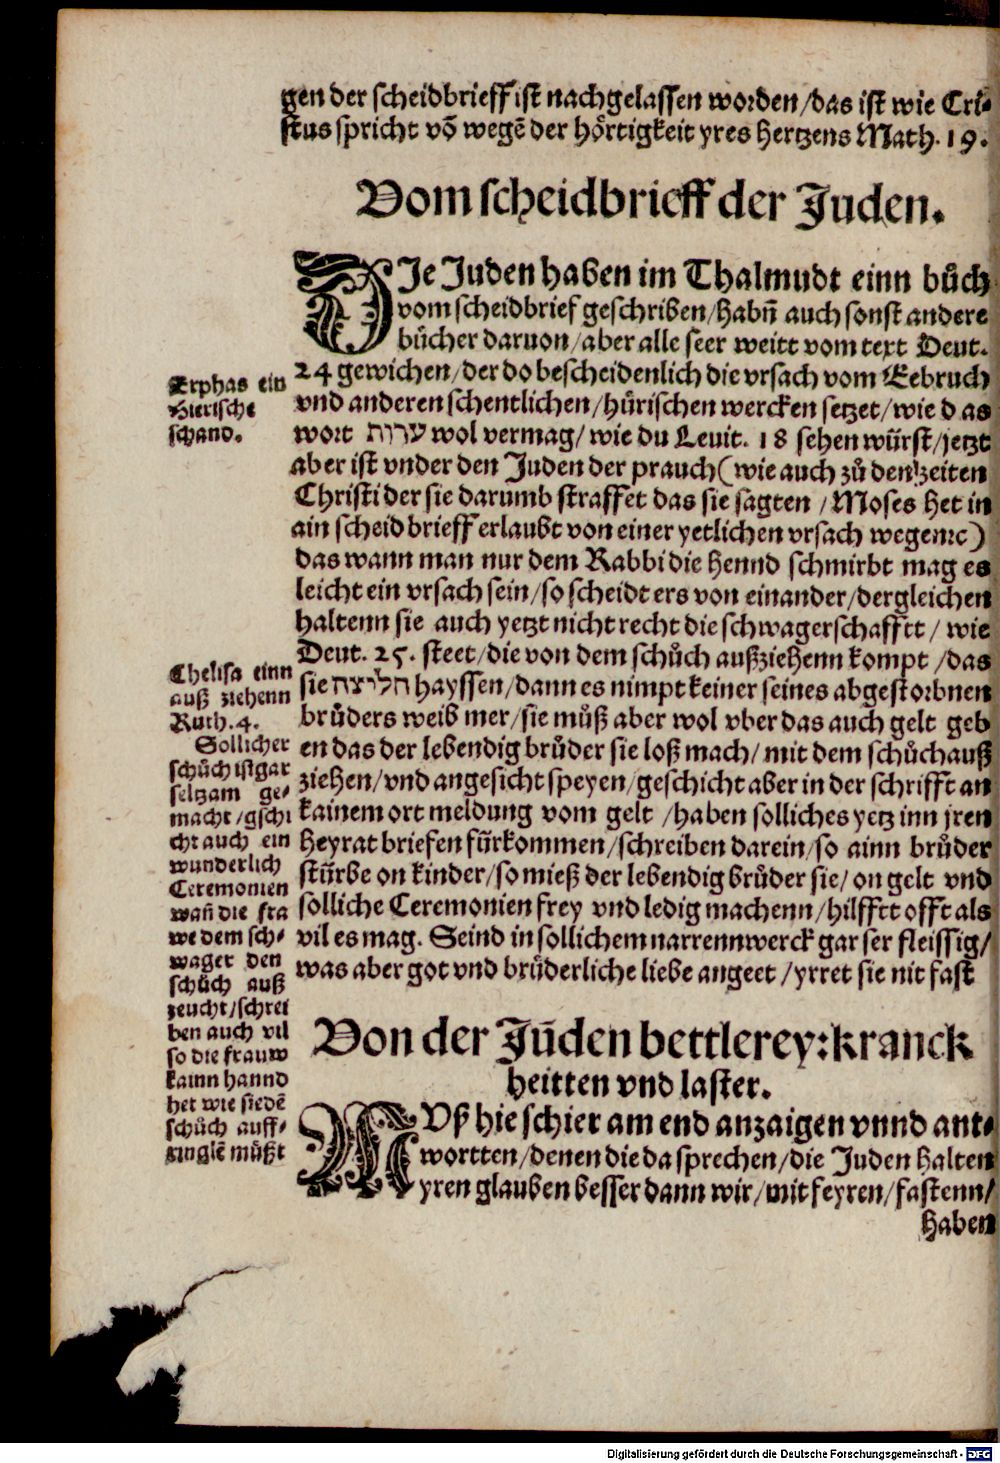 gen der scheidbrieff ist nachgelassen worden/das ist wie Cri-
stus spricht vō wegē der hoͤrtigkeit yres hertzens Math. 19.
Vom scheidbrieff der Juden.
DJe Juden haben im Thalmudt einn buͦch
vom scheidbrief geschriben/habn̄ auch sonst andere
buͤcher daruon/aber alle seer weitt vom text Deut.
24 gewichen/der do bescheidenlich die vrsach vom Eebruch
vnd anderen schentlichen/huͤrischen wercken setzet/wie das
wort ערות wol vermag/wie du Leuit. 18 sehen wuͤrst/jetzt
aber ist vnder den Juden der prauch (wie auch zuͦ den zeiten
Christi der sie darumb straffet das sie sagten /Moses het in
ain scheidbrieff erlaubt von einer yetlichen vrsach wegen ꝛc)
das wann man nur dem Rabbi die hennd schmirbt mag es
leicht ein vrsach sein/so scheidt ers von einander/dergleichen
haltenn sie auch yetzt nicht recht die schwagerschafftt / wie
Deut. 25. steet/die von dem schuͦch außziehenn kompt /das
sie חליצה hayssen/dann es nimpt keiner seines abgestorbnen
bruͦders weib mer/sie muͦß aber wol vber das auch gelt geb
en das der lebendig bruͦder sie loß mach/ mit dem schuͦch auß
ziehen/vnd angesicht speyen/geschicht aber in der schrifft an
kainem ort meldung vom gelt /haben solliches yetz inn jren
heyrat briefen fuͤrkommen/schreiben darein/so ainn bruͦder
stuͤrbe on kinder/so mieß der lebendig bruͦder sie/ on gelt vnd
solliche Ceremonien frey vnd ledig machenn/hilfftt offt als
vil es mag. Seind in sollichem narrennwerck gar ser fleissig/
was aber got vnd bruͤderliche liebe angeet /yrret sie nit fast
Erphas ein
Hierische
schand.
Chelisa einn
auß ziehenn
Ruth. 4.
Sollicher
schuͦch ist gar
seltzam ge-
macht /gschi
cht auch ein
wunderlich
Ceremonien
wan̄ die fra
we dem sch-
wager den
schuͦch auß
zeucht/schrei
ben auch vil
so die frauw
kainn hannd
het wie sie dē
schuͦch auff-
ringlē muͤßt
Von der Juͤden bettlerey: kranck
heitten vnd laster.
MVß hie schier am end anzaigen vnnd ant-
wortten/denen die da sprechen/die Juden halten
yren glauben besser dann wir/mit feyren/fastenn/
haben
Digitalisierung gefördert durch die Deutsche Forschungsgemeinschaft - DFG